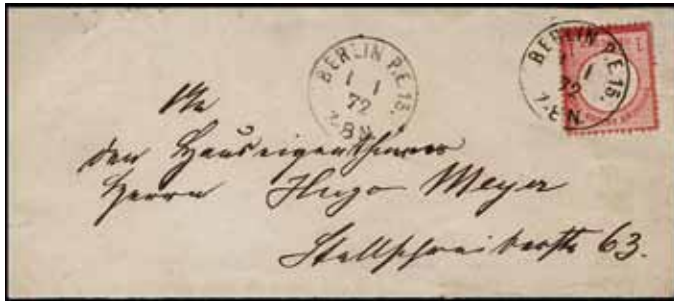 BERLIN P.E.15.
1 1
72
7-8 N.
BERLIN P.E.15.
1 1
72
7-8 N.
An
den Hauseigenthümer
Herrn Hugo Meyer
Stallschreiberstr 63.